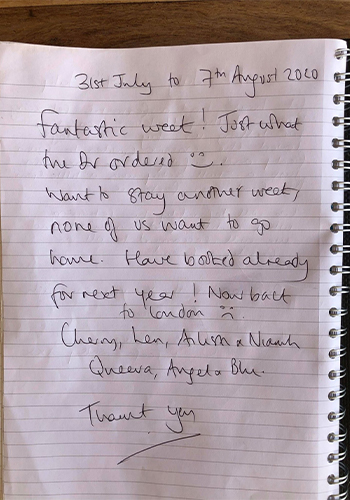 31st July to 7th August 2020
Fantastic week! Just what
the Dr ordered :).
Want to stay another week,
none of us want to go
home. Have booked already
for next year! Now back
to London :(.
Cheryl, Len, & Niamh
Queeva, Angel & Blu.
Thank you